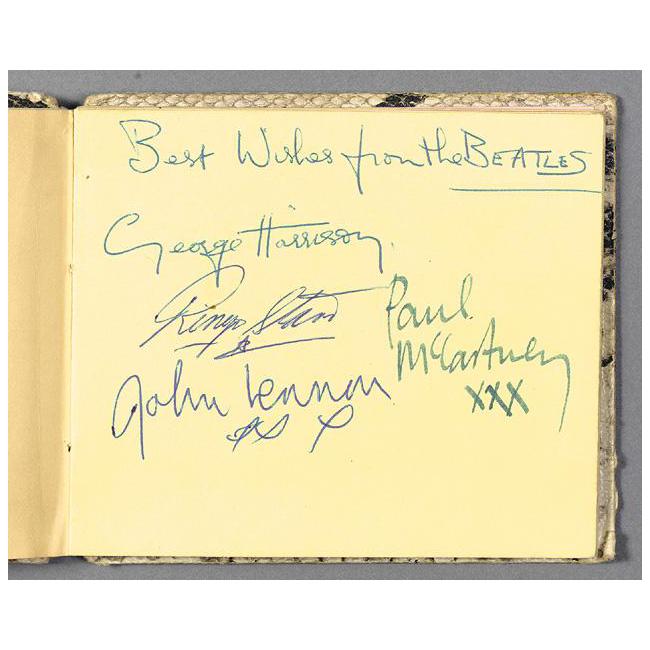 Best Wishes from the BEATLES
George Harrison
Ringo Starr
Paul
McCartney
XXX
John Lennon
XX X